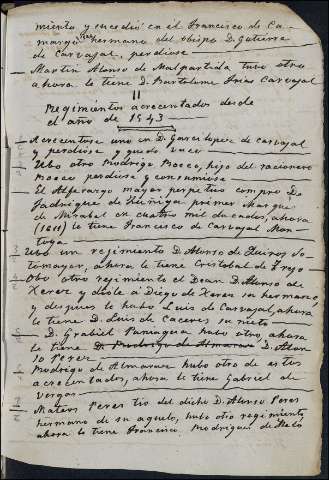 miento y sucedió en el Francisco de Ca-
margo hermano del obispo D. Gutierre
de Carvajal, perdiose
Martin Alonso de Malpartida tuvo otro
ahora le tiene D. Bartolome Arias Carvajal
II
Regimientos acrecentados desde
el año de 1543
Acrecentose uno en D. Garcia lopez de Carvajal
y perdiose y quedo vaco
Ubo otro Rodrigo Bosco, hijo del racionero
Bosco perdiose y consumiose
El Alferazgo mayor perpetuo compró D.
Fadrique de Zuñiga primer Marqués
de Mirabel en cuatro mil ducados, ahora
(1611) le tiene Francisco de Carvajal Mon-
Ubo un regimiento D. Alonso de So-
tomayor, ahora le tiene Cristobal de
Obo otro regimiento el Dean D. Alonso de
Xerex y diole a Diego de Xerex su hermano,
y despues le hubo Luis de Carvajal, ahora
le tiene D. Luis de Caceres su nieto
D. Grabiel Paniagua hubo otro, ahora
le tiene D. Rodrigo de Almaraz D. Alon
so Perez
Rodrigo de Almaraz hubo otro de estos
acrecentados, ahora le tiene Gabriel de
Vargas
Mateos Peres tio del dicho D. Alonso Peres
hermano de su aguelo, hubo otro regimiento
ahora le tiene Francisco Rodrigues de